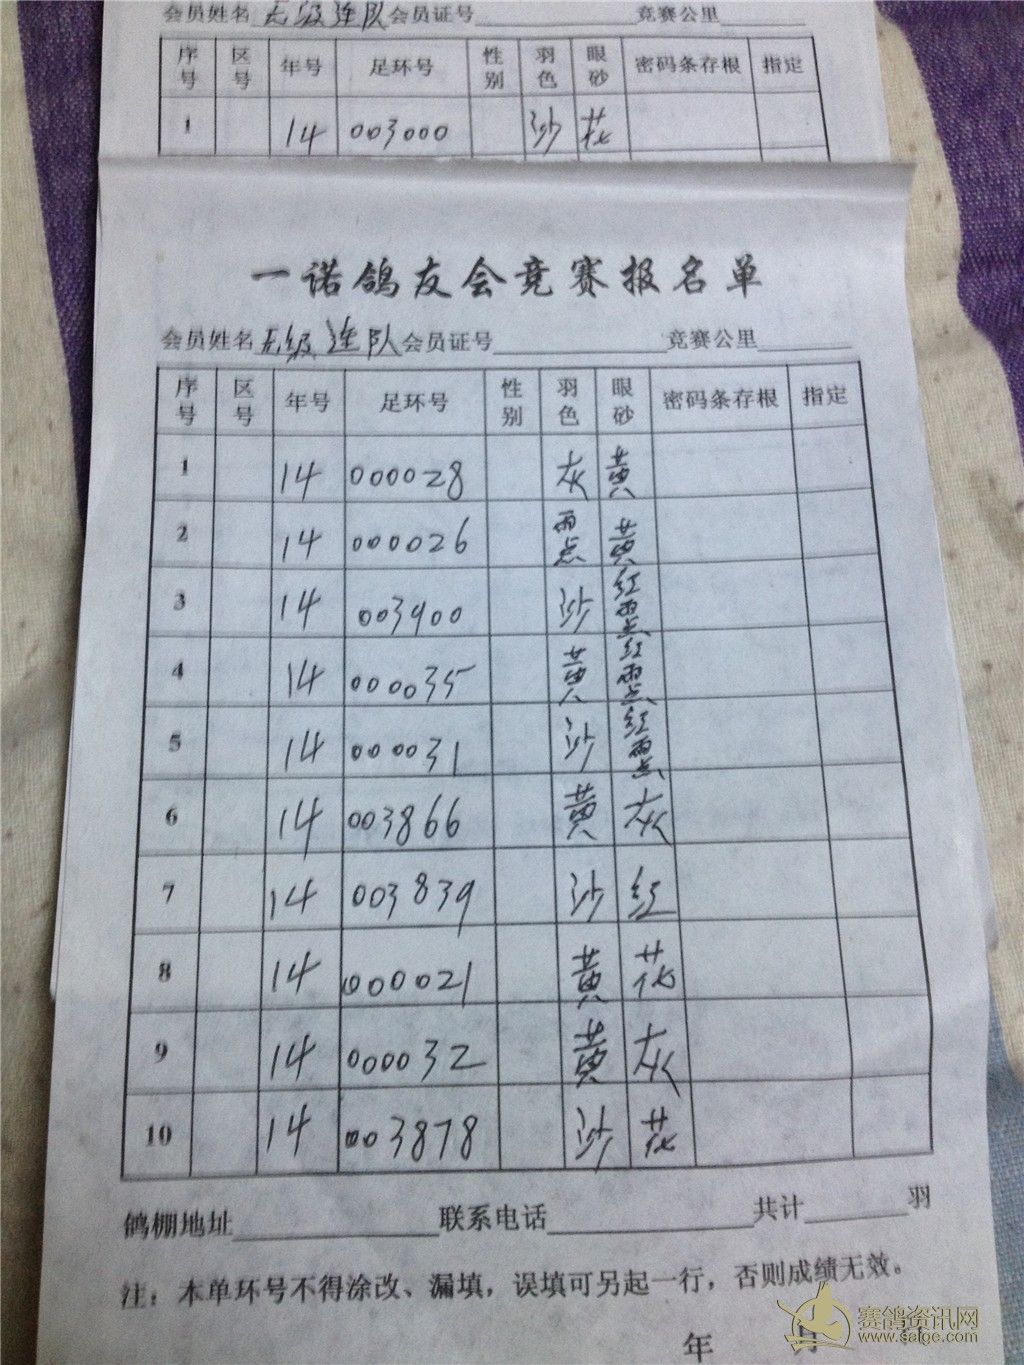 会员姓名 无级连队 会员证号 竞赛公里
序号 区号 年号 足环号 性别 羽色 眼砂 密码条存根 指定
1 14 003000 沙 花
一诺鸽友会竞赛报名单
会员姓名 无级连队 会员证号 竞赛公里
序号 区号 年号 足环号 性别 羽色 眼砂 密码条存根 指定
1 14 000028 灰 黄
2 14 000026 雨点 黄
3 14 003900 沙 红雨点
4 14 000035 黄 红雨点
5 14 000031 沙 红雨点
6 14 003866 黄 灰
7 14 003839 沙 红
8 14 000021 黄 花
9 14 000032 黄 灰
10 14 003878 沙 花
鸽棚地址 联系电话 共计 羽
注：本单环号不得涂改、漏填，误填可另起一行，否则成绩无效。
年 月
赛鸽资讯网
www.saige.com